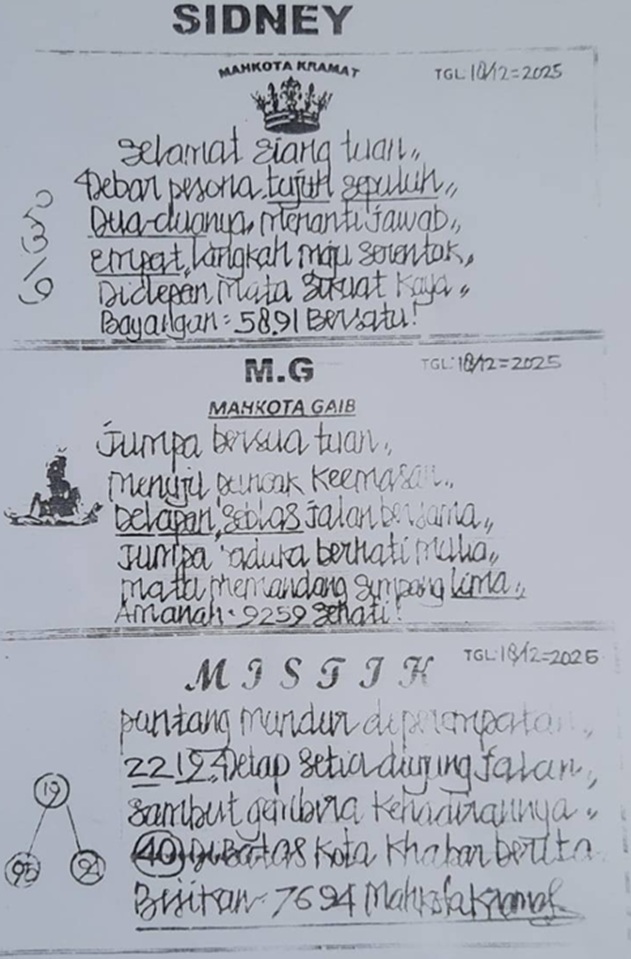 SIDNEY
MAHKOTA KRAMAT
TGL: 18/12=2025
Selamat siang tuan,,
Debar pesona tujuh sepuluh,,
Dua-duanya, menanti jawab,,
empat, langkah maju serentak,,
Didepan mata sikuat kaya,,
Bayangan: 58.91 Bersatu!
M.G
TGL: 18/12=2025
MAHKOTA GAIB
Jumpa bersua tuan,,
menuju puncak Keemasan,,
Delapan, seblas jalan bersama,,
Jumpa aduka berhati mulia,,
mata memandang simpang lima,,
Amanah: 9259 Sehati!
MISTIK
TGL: 18/12=2025
pantang mundur diperempatan,,
22 12, Tetap setia diujung jalan,,
19
sambut gembira kehadirannya,,
95 94
40 Dibatas Kota Khabar berita
Bisikan: 7694 Mahkota Kramat